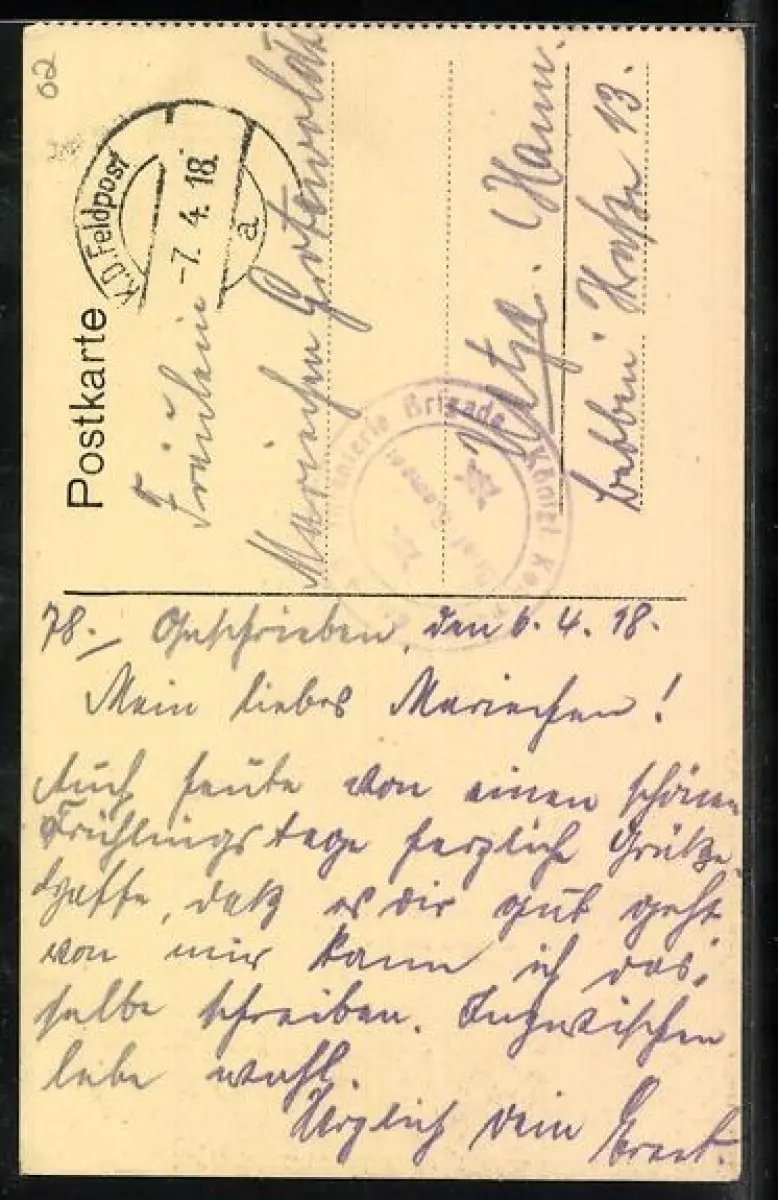 62
Postkarte
K.D. Feldpost
-7.4.18.
a
Fräulein
Mariechen
(Hann.
13.
Infanterie Brigade Königl
78. Geschrieben, den 6.4.18.
Mein liebes Mariechen!
Auch heute von einen schönen
Frühlingstage herzliche Grüße.
Hoffe, daß es dir gut geht
von mir kann ich das-
selbe schreiben. Inzwischen
lebe wohl.
Herzlich dein Ernst.